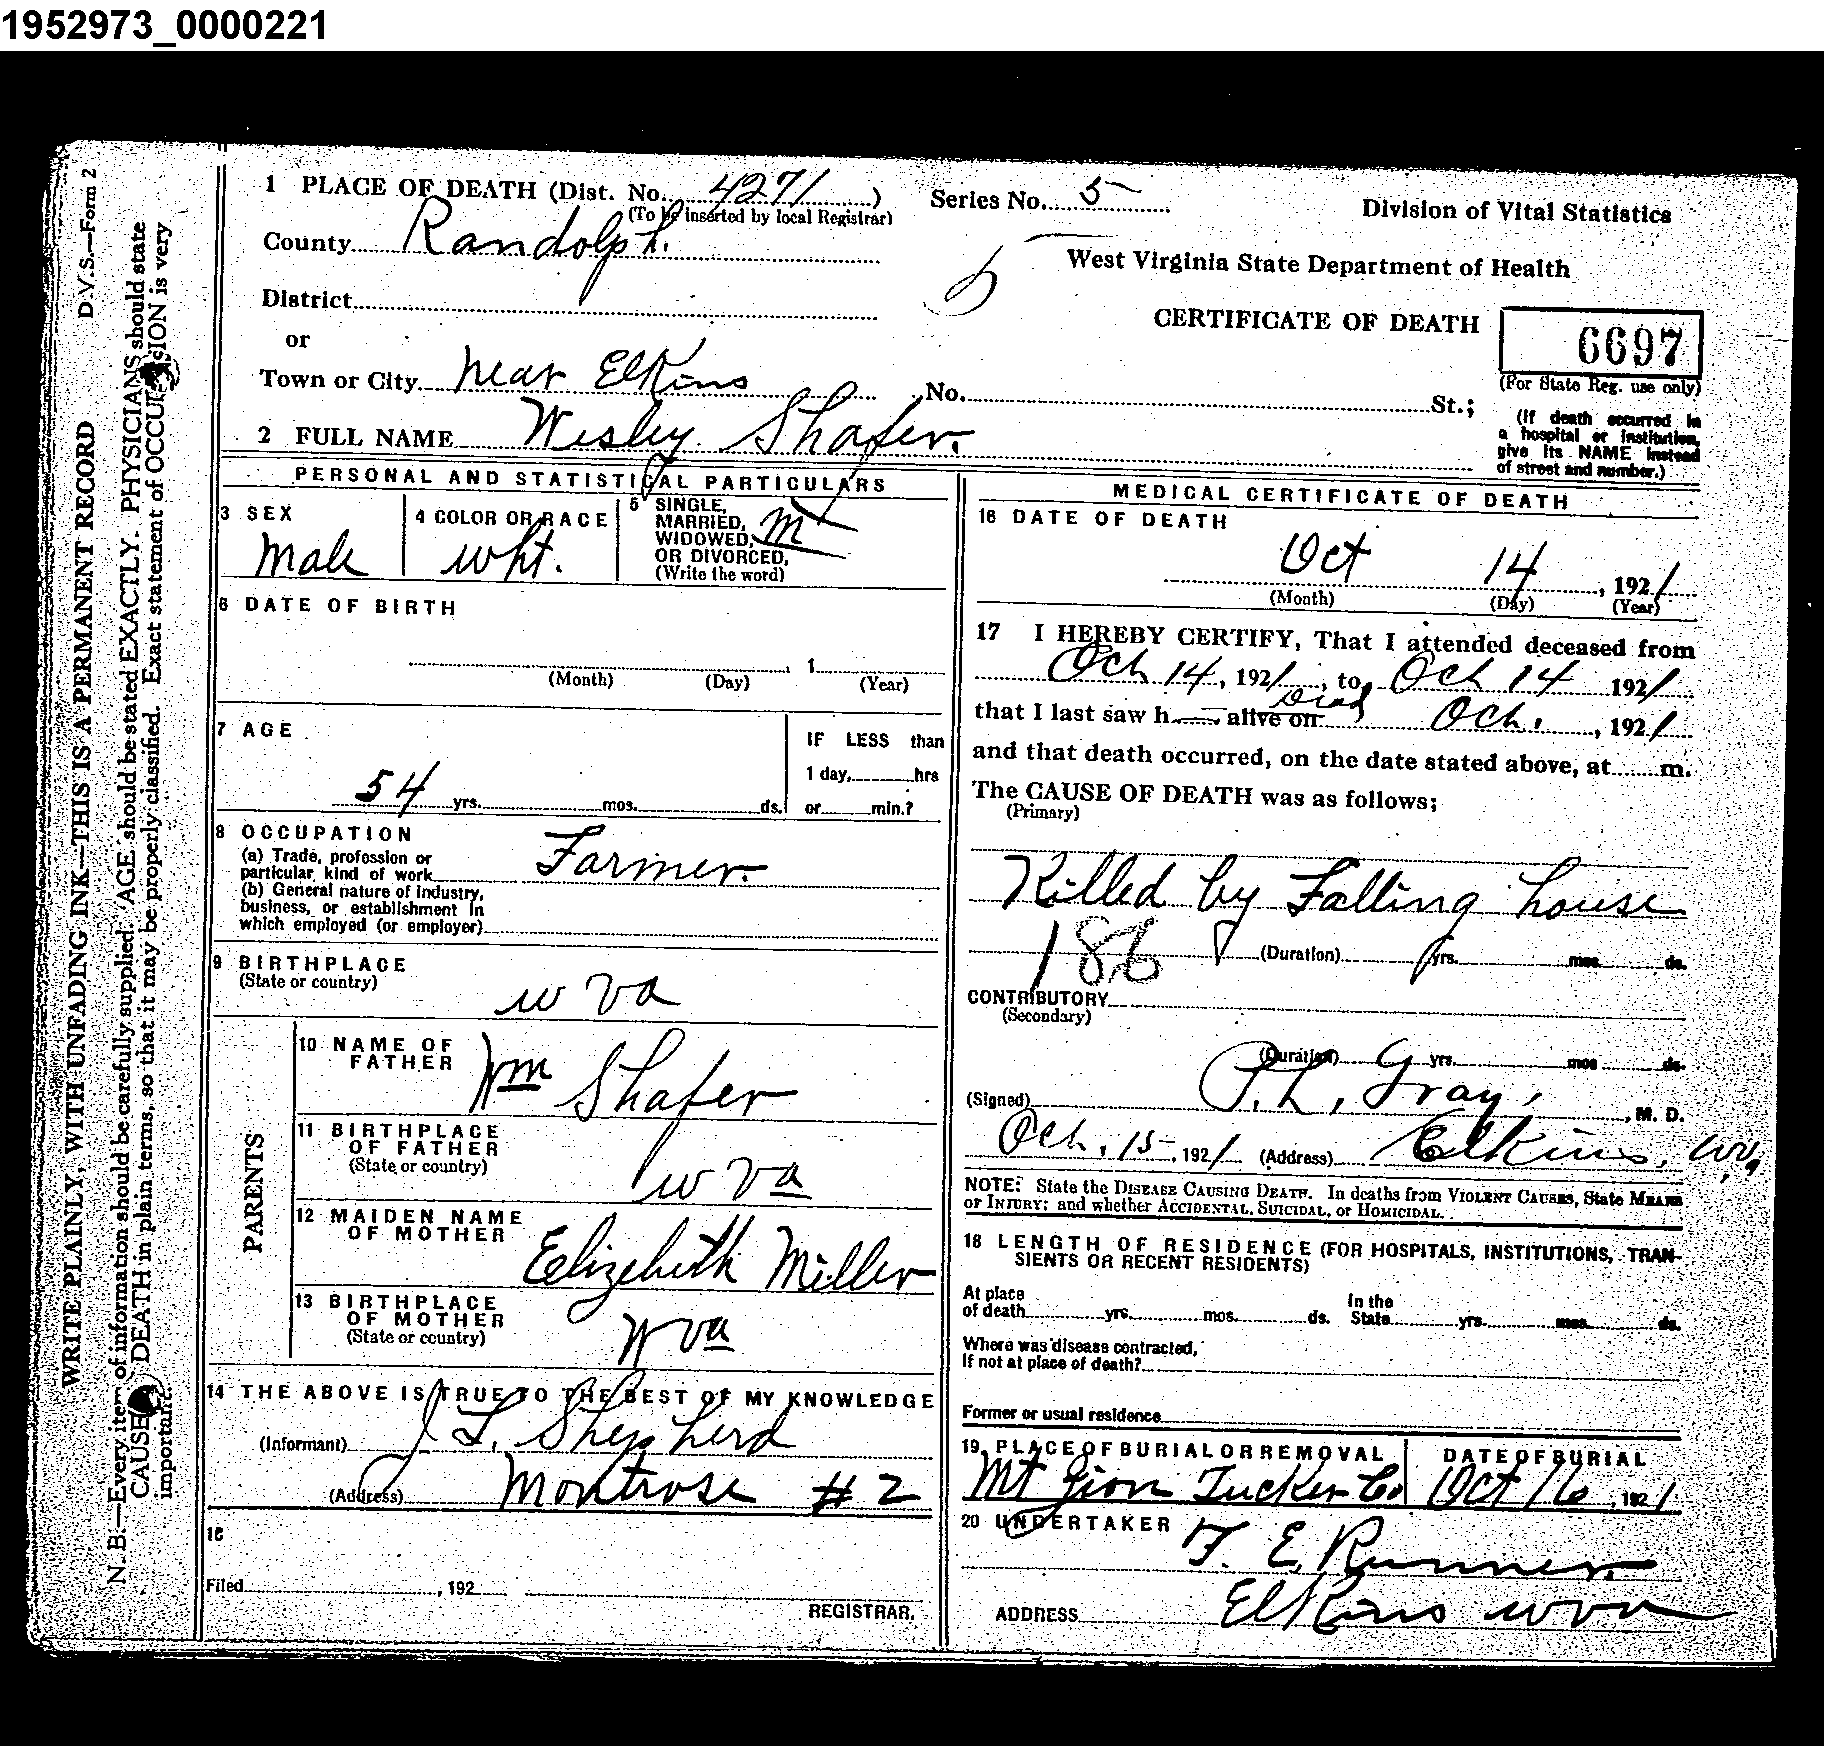 1952973_0000221
1 PLACE OF DEATH (Dist. No. 4271 )
(To be inserted by local Registrar)
Series No. 5
Division of Vital Statistics
County Randolph.
West Virginia State Department of Health
District
CERTIFICATE OF DEATH
6697
(For State Reg. use only)
or
Town or City near Elkins No. St.;
(If death occurred in
a hospital or institution,
give its NAME instead
of street and number.)
2 FULL NAME Wesley Shafer.
PERSONAL AND STATISTICAL PARTICULARS
3 SEX
Male
4 COLOR OR RACE
wht.
5 SINGLE,
MARRIED,
WIDOWED,
OR DIVORCED,
(Write the word)
M
6 DATE OF BIRTH
, 1
(Month) (Day) (Year)
7 AGE
54 yrs. mos. ds.
IF LESS than
1 day, hrs
or min.?
8 OCCUPATION
(a) Trade, profession or
particular kind of work Farmer.
(b) General nature of industry,
business, or establishment in
which employed (or employer)
9 BIRTHPLACE
(State or country)
w va
PARENTS
10 NAME OF
FATHER Wm Shafer
11 BIRTHPLACE
OF FATHER
(State or country) w va
12 MAIDEN NAME
OF MOTHER Elizebeth Miller
13 BIRTHPLACE
OF MOTHER
(State or country) W va
14 THE ABOVE IS TRUE TO THE BEST OF MY KNOWLEDGE
(Informant) J L. Shepherd
(Address) Montrose # 2
15
Filed , 192
REGISTRAR.
MEDICAL CERTIFICATE OF DEATH
16 DATE OF DEATH
Oct 14 , 1921
(Month) (Day) (Year)
17 I HEREBY CERTIFY, That I attended deceased from
Oct 14, 1921, to Oct 14 1921
that I last saw h alive on Dead Oct. , 1921
and that death occurred, on the date stated above, at m.
The CAUSE OF DEATH was as follows;
(Primary)
Killed by Falling house
186 (Duration) yrs. mos. ds.
CONTRIBUTORY
(Secondary)
(Duration) yrs. mos ds.
(Signed) P. L. Gray, , M. D.
Oct. 15, 1921 (Address) Elkins, W.V.
NOTE: State the DISEASE CAUSING DEATH. In deaths from VIOLENT CAUSES, State MEANS
OF INJURY; and whether ACCIDENTAL, SUICIDAL, or HOMICIDAL.
18 LENGTH OF RESIDENCE (FOR HOSPITALS, INSTITUTIONS, TRAN-
SIENTS OR RECENT RESIDENTS)
At place
of death yrs. mos. ds.
In the
State yrs. mos. ds.
Where was disease contracted,
If not at place of death?
Former or usual residence
19 PLACE OF BURIAL OR REMOVAL
Mt Zion Tucker Co
DATE OF BURIAL
Oct 16, 1921
20 UNDERTAKER F. E. Runner.
ADDRESS Elkins w va
D.V.S.—Form 2
WRITE PLAINLY, WITH UNFADING INK—THIS IS A PERMANENT RECORD
N. B.—Every item of information should be carefully supplied. AGE should be stated EXACTLY. PHYSICIANS should state
CAUSE DEATH in plain terms, so that it may be properly classified. Exact statement of OCCU ION is very
important.